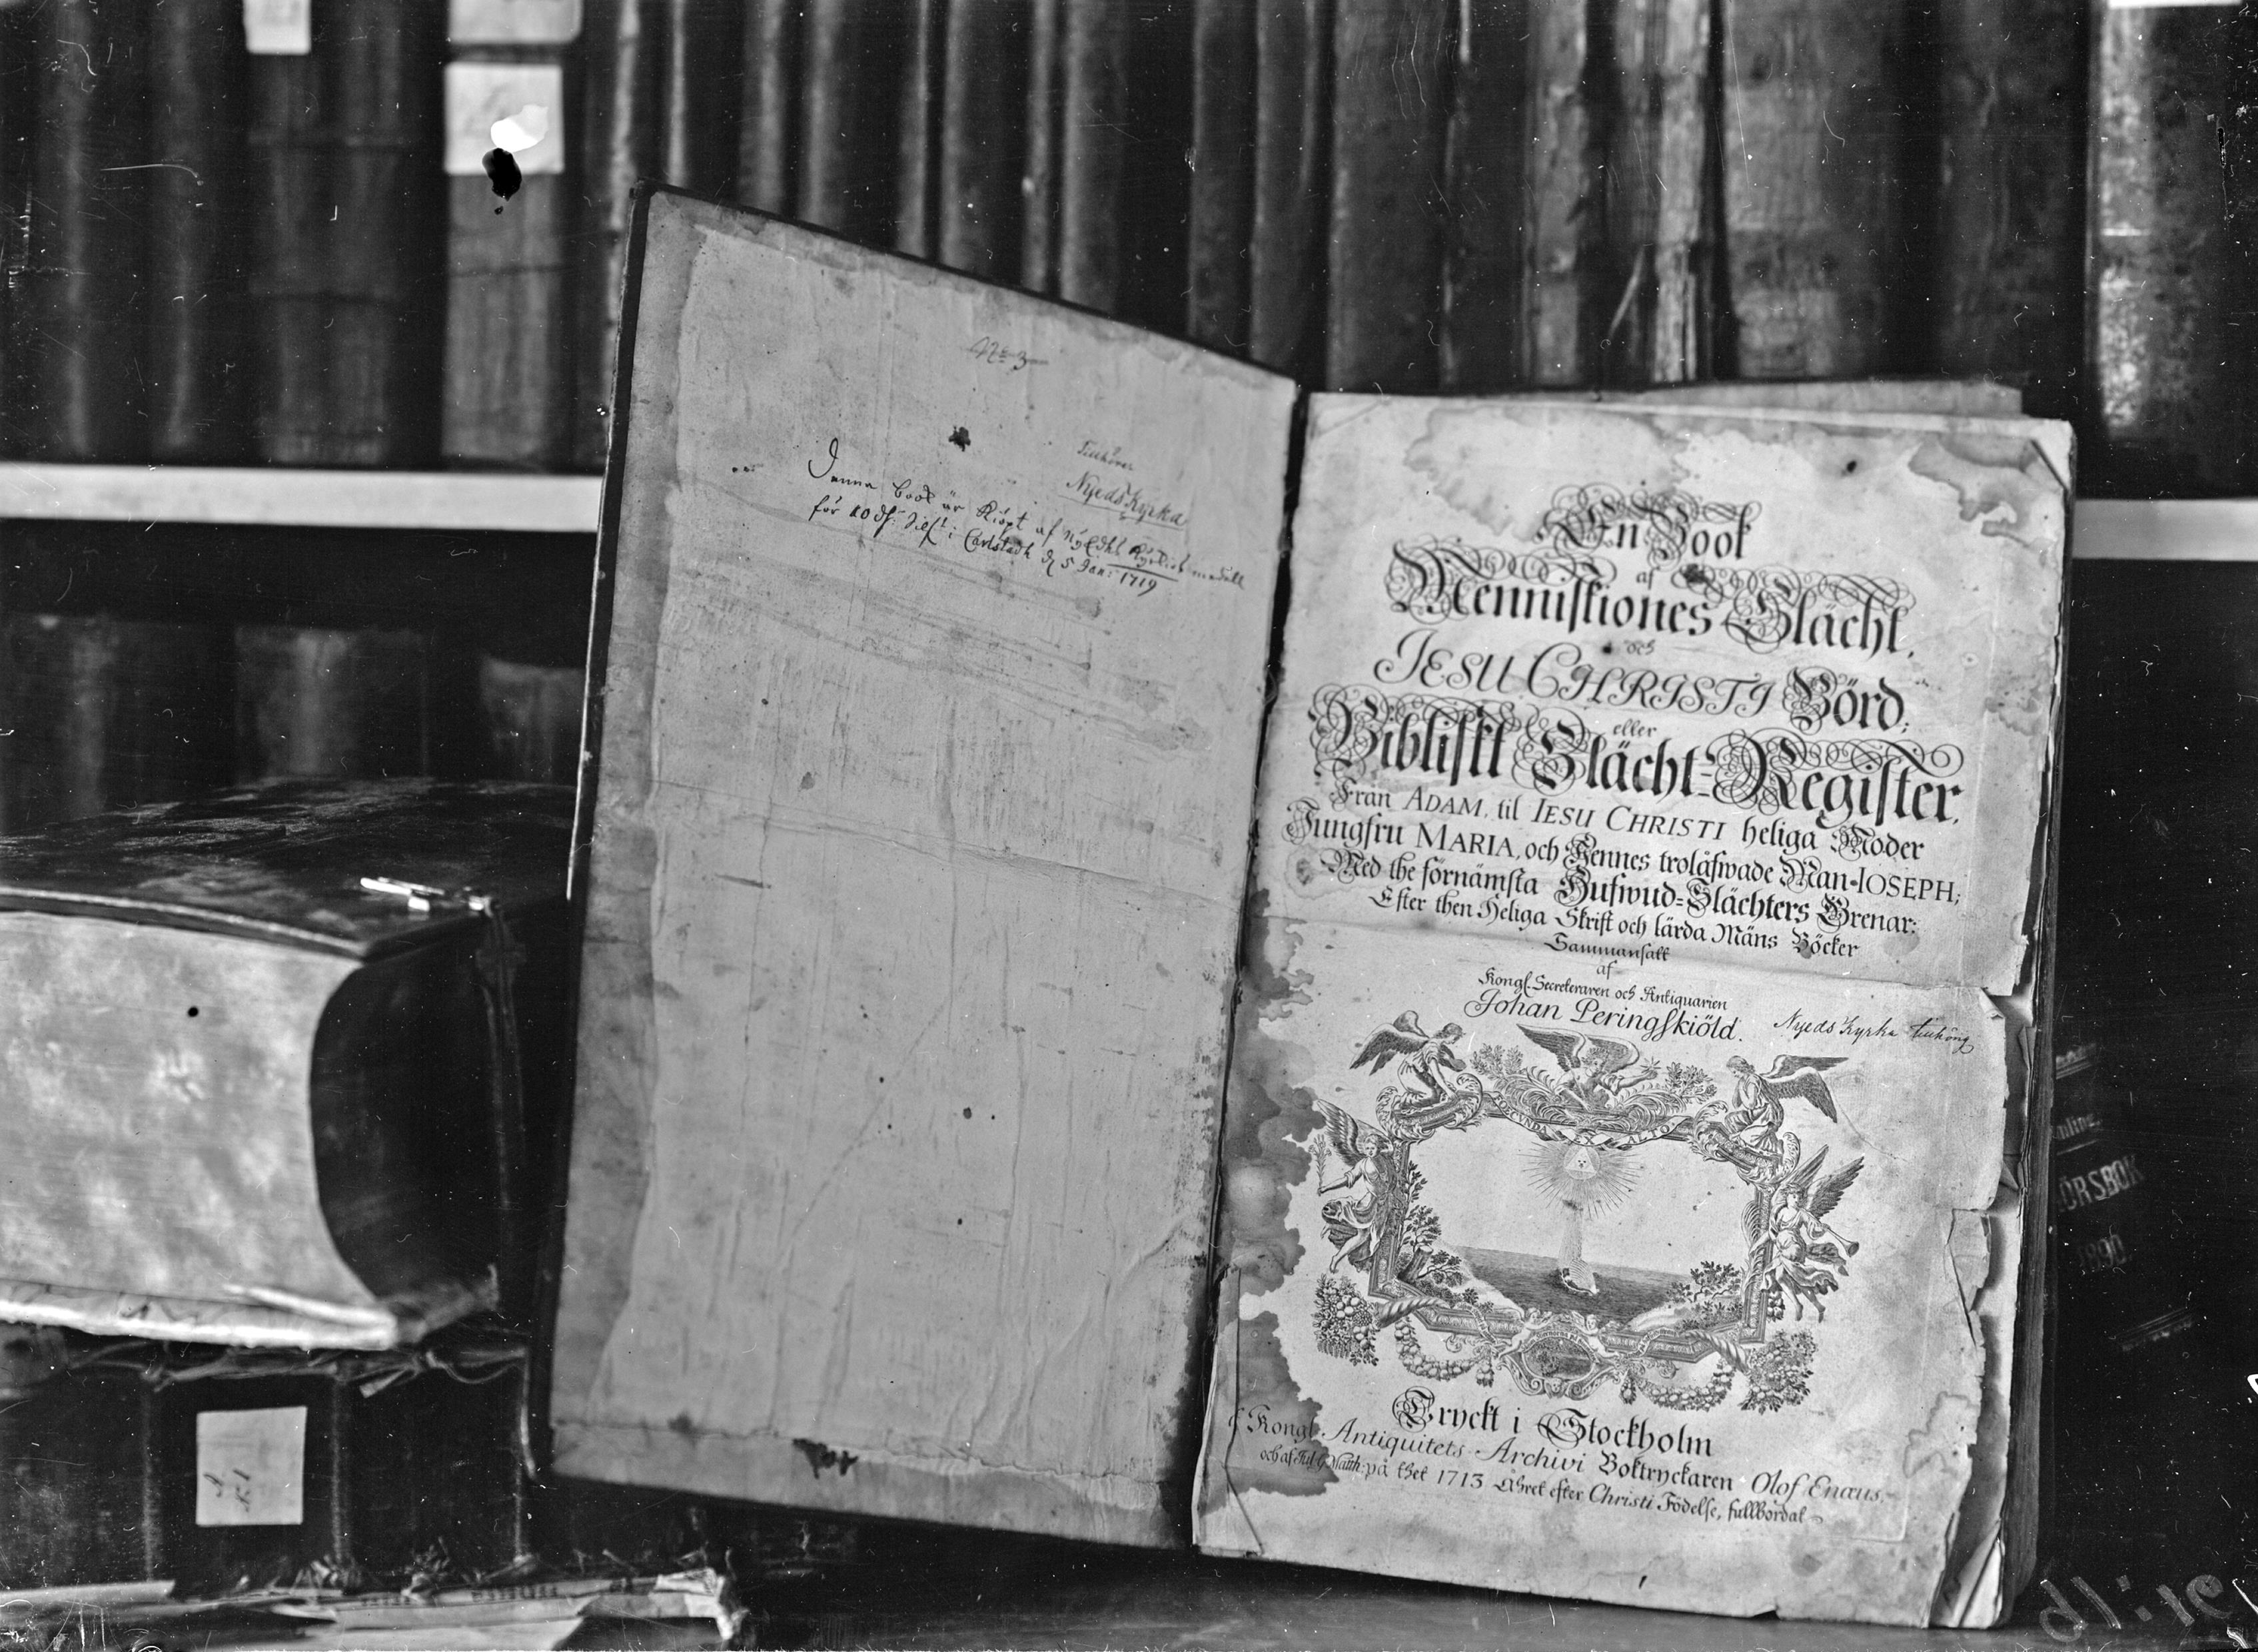 No 3
Tillhörer
Nyeds Kyrka
Denna Book är Kiöpt af Nyedhs Kyrkios medell
för 20 dr. Silf: i Carlstadh d 5 Jan: 1719
En Book
af
Menniskiones Slächt,
och
JESU CHRISTI Börd;
eller
Bibliskt Slächt=Register,
Från ADAM, til IESU CHRISTI heliga Moder
Jungfru MARIA, och Hennes trolåfwade Man=IOSEPH;
Med the förnämsta Hufwud=Slächters Grenar:
Efter then Heliga Skrift och lärda Mäns Böcker
Sammansatt
af
Kongl. Secreteraren och Antiquarien
Johan Peringskiöld.
Nyeds Kyrka tillhörig
FOECUNDA EX ALTO
Tryckt i Stockholm
Kongl. Antiquitets-Archivi Boktryckaren Olof Enæus,
och af Jul. G. Matth: på thet 1713 Åhret efter Christi Födelse, fullbordat
ÖRSBOK
1890